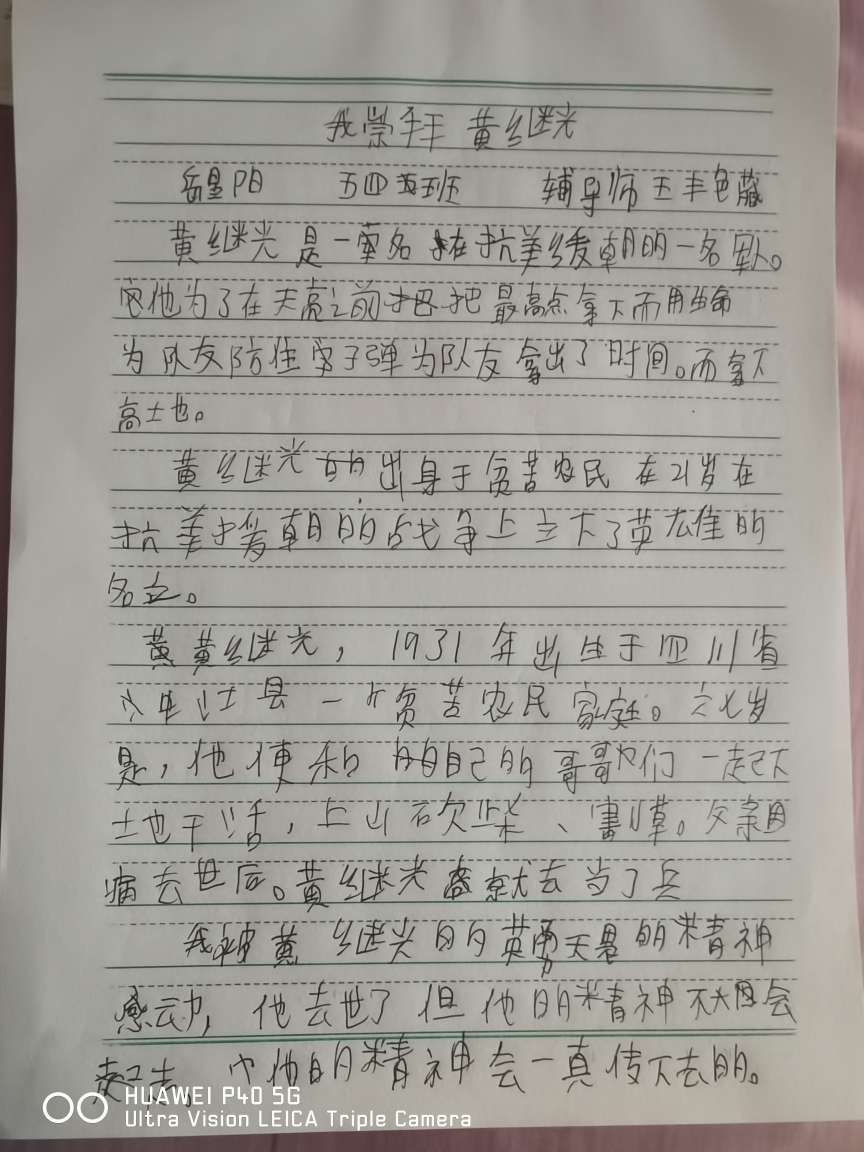 我崇拜 黄继光
阳 五四班 辅导师 王丰色藏
黄继光是一名在抗美缓朝的一名军人。
他为了在天亮之前把最高点拿下而用生命
为队友防住子弹为队友拿出了时间。而拿下
高土也。
黄继光出身于贫苦农民在21岁在
抗美援朝的战争上立下了英雄的
名立。
黄黄继光，1931年出生于四川省
中江县一个贫苦农民家庭。六七岁
是，他便和自己的哥哥们一起下
土也干活，上山砍柴、割草。父亲因
病去世后。黄继光就去当了兵
我被黄继光的英勇无畏的精神
感动，他去世了但他的精神不会
他的精神会一真传下去的。
HUAWEI P40 5G
Ultra Vision LEICA Triple Camera